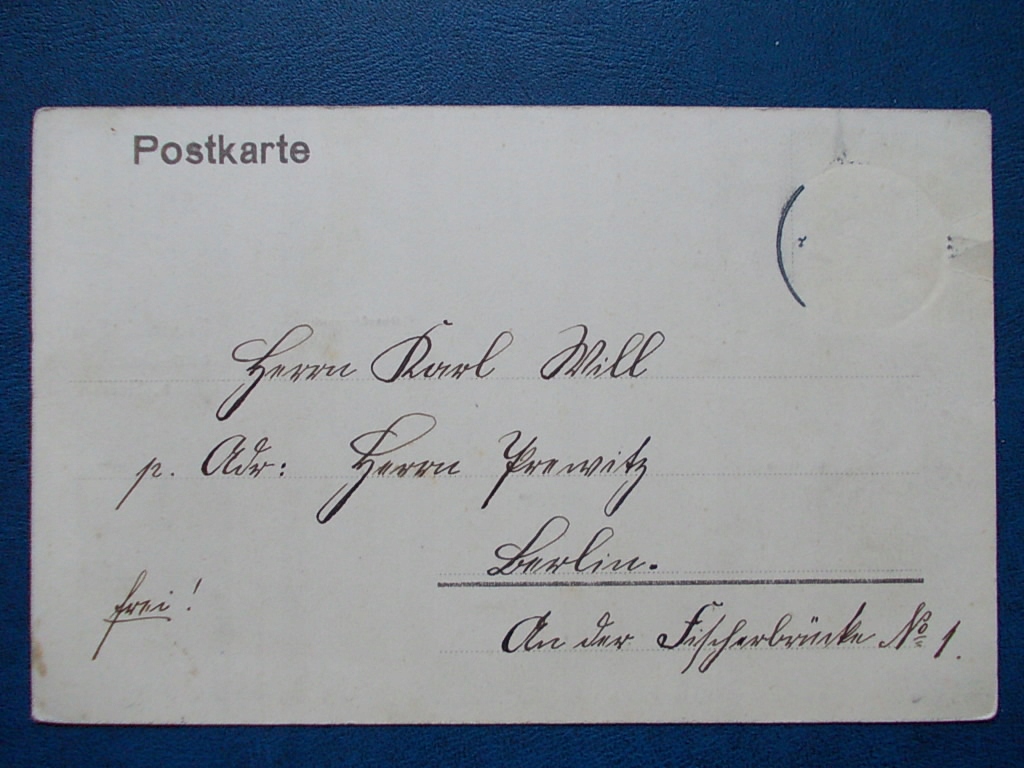 Postkarte
Herrn Karl Will
p. Adr: Herrn Prewitz
Berlin.
frei!
An der Fischerbrücke No 1.